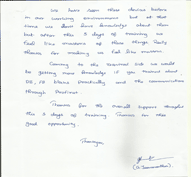 We have seen these devices before
in our working environment but at that
time we don't have knowledge about them
but after the 3 days of training we
feel like masters of these things. Really
thanks for making us feel like masters.
Coming to the required side we would
be getting more knowledge if you trained about
practically and the communication
through
Thanks for the overall support
this 3 days of training. Thanks for this
good opportunity.
Thankyou,